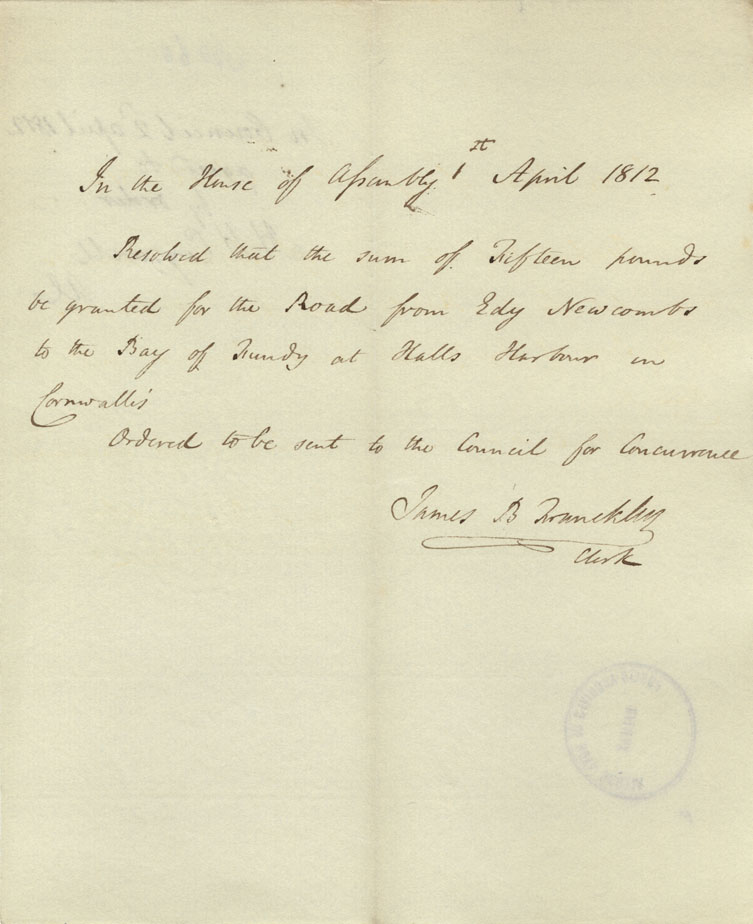 In the House of Assembly 1st April 1812
Resolved that the sum of Fifteen pounds
be granted for the Road from Edy Newcombs
to the Bay of Fundy at Halls Harbour in
Cornwallis
Ordered to be sent to the Council for Concurrence
James B Franckling
Clerk
In Council 2d April 1812